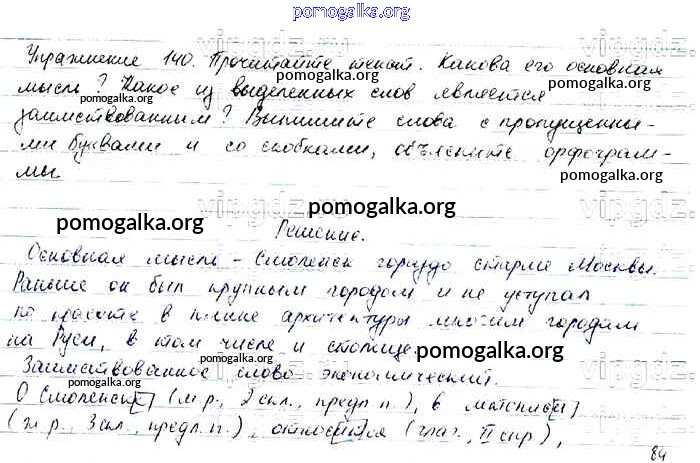 pomogalka.org
Упражнение 140. Прочитайте текст. Какова его основная
pomogalka.org
мысль? Какое из выделенных слов является
pomogalka.org
pomogalka.org
заимствованным? Выпишите слова с пропущенны-
ми буквами и со скобками, объясните орфограм-
мы
pomogalka.org
pomogalka.org
pomogalka.org
Решение.
Основная мысль - Смоленск гораздо старше Москвы.
Раньше он был крупным городом и не уступал
по красоте в плане архитектуры многим городам
на Руси, в том числе и столице.
pomogalka.org
pomogalka.org
Заимствованное слово экономический.
pomogalka.org
О Смоленск[е] (м.р., 2 скл., предл. п.), в летопис[и]
(ж.р., 3 скл., предл. п.), относ[и]тся (глаг., II спр),
84